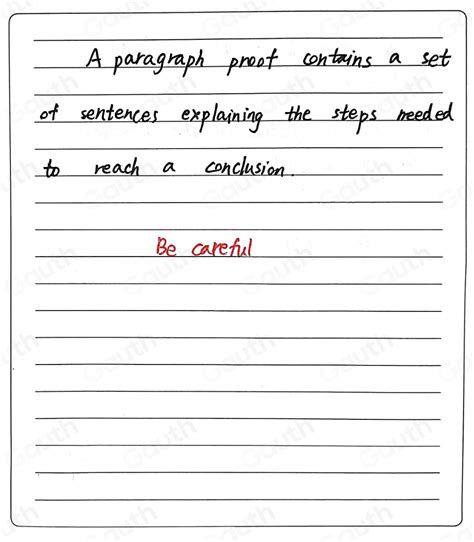 A paragraph proof contains a set
of sentences explaining the steps needed
to reach a conclusion.
Be careful